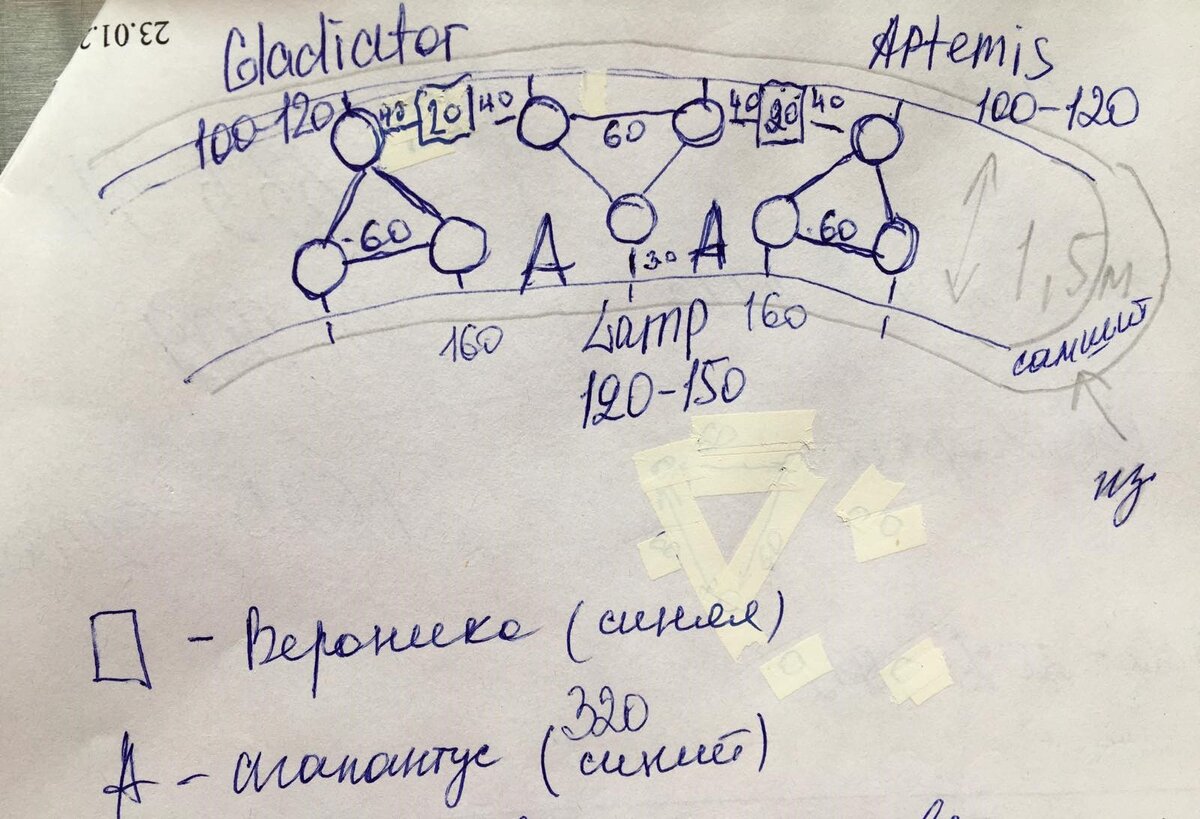 23.01.
Gladiator
Артemis
100-120
40 20 40
60
40 20 40
100-120
60
A
30
A
60
1,5м
160
Lamp
160
самшит
120-150
из
- Вероника (синяя)
320
A - агапантус (синий)